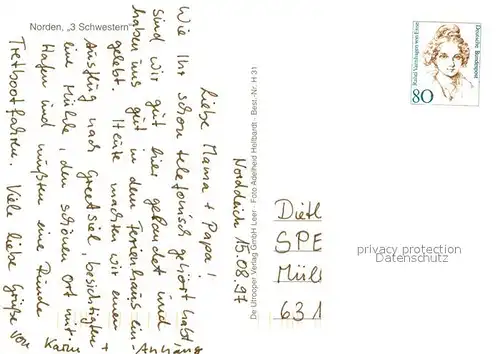 Norden, „3 Schwestern"
Norddeich 15.08.97
Liebe Mama + Papa!
Wie Ihr schon telefonisch gehört habt,
sind wir gut hier gelandet und
haben uns gut in dem Ferienhaus ein-
gelebt. Heute machten wir einen
Ausflug nach Greetsiel, besichtigten
eine Mühle, den schönen Ort mit
Hafen und mußten eine Runde
Tretbootfahren. Viele liebe Grüße von
Karin +
Anhang
De Utrooper Verlag GmbH Leer - Foto Adelheid Heitbardt - Best.-Nr. H 31
Deutsche Bundespost
Rahel Varnhagen von Ense
80
Dietl
SPE
Mül
631
privacy protection
Datenschutz